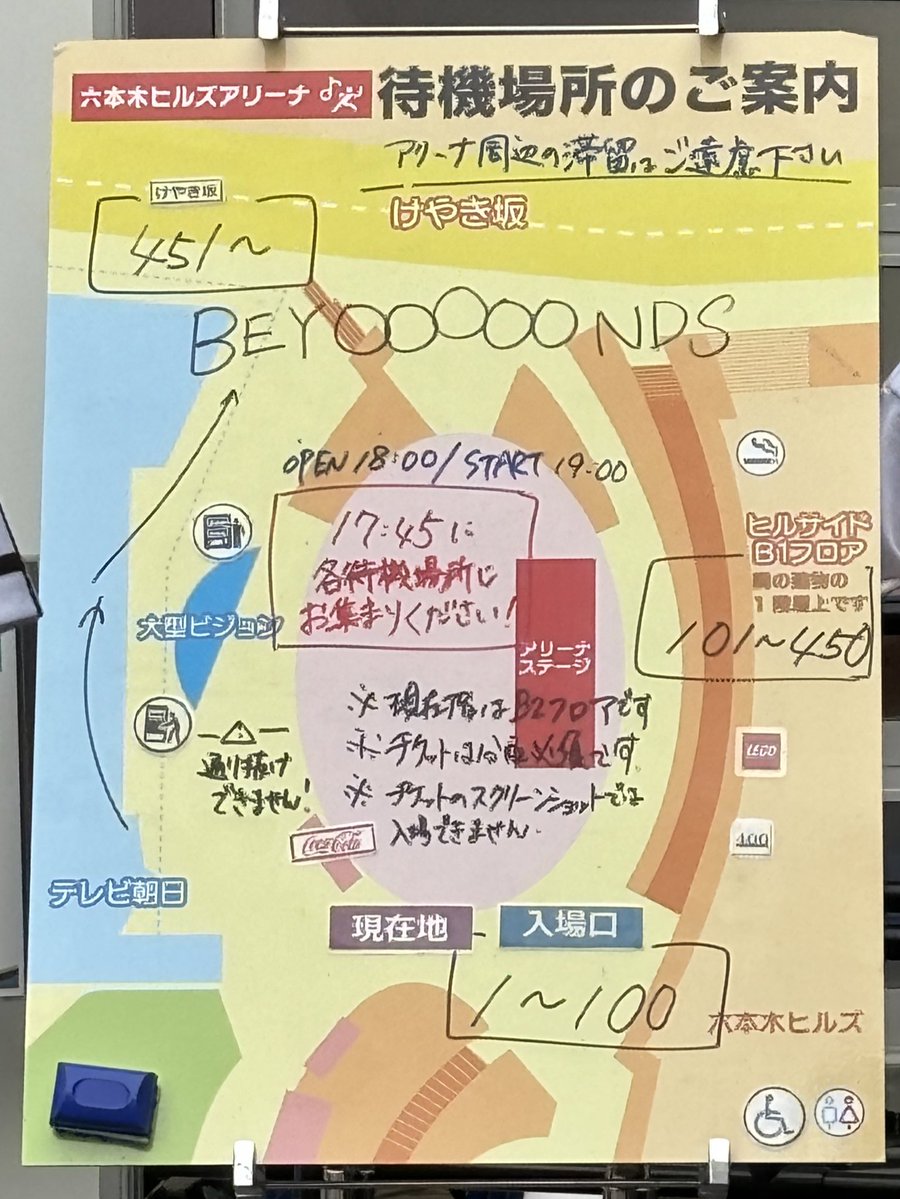 六本木ヒルズアリーナ
待機場所のご案内
アリーナ周辺の滞留はご遠慮下さい
けやき坂
けやき坂
451～
BEYOOOOONDS
OPEN 18:00/START 19:00
17:45に
各待機場所に
お集まりください!
ヒルサイド
B1フロア
1階層上です
101～450
大型ビジョン
アリーナ
ステージ
※ 現在階はB2フロアです
※ チケットは必須です
※ チケットのスクリーンショットでは
入場できません.
通り抜け
できません!
LEGO
400
Coca-Cola
テレビ朝日
現在地
入場口
1～100
六本木ヒルズ